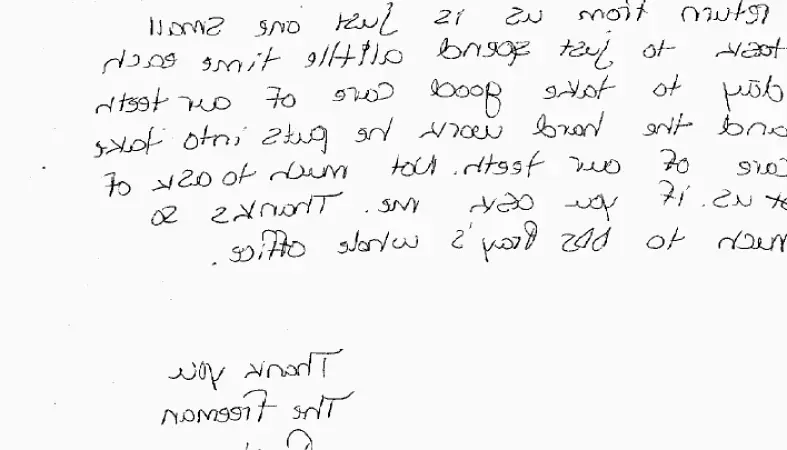 return from us is just one small
task to just spend alittle time each
day to take good care of our teeth
and the hard work he puts into take
care of our teeth. Not much to ask of
us. if you ask me. Thanks so
much to DDS whole office.
Thank you
The Freeman